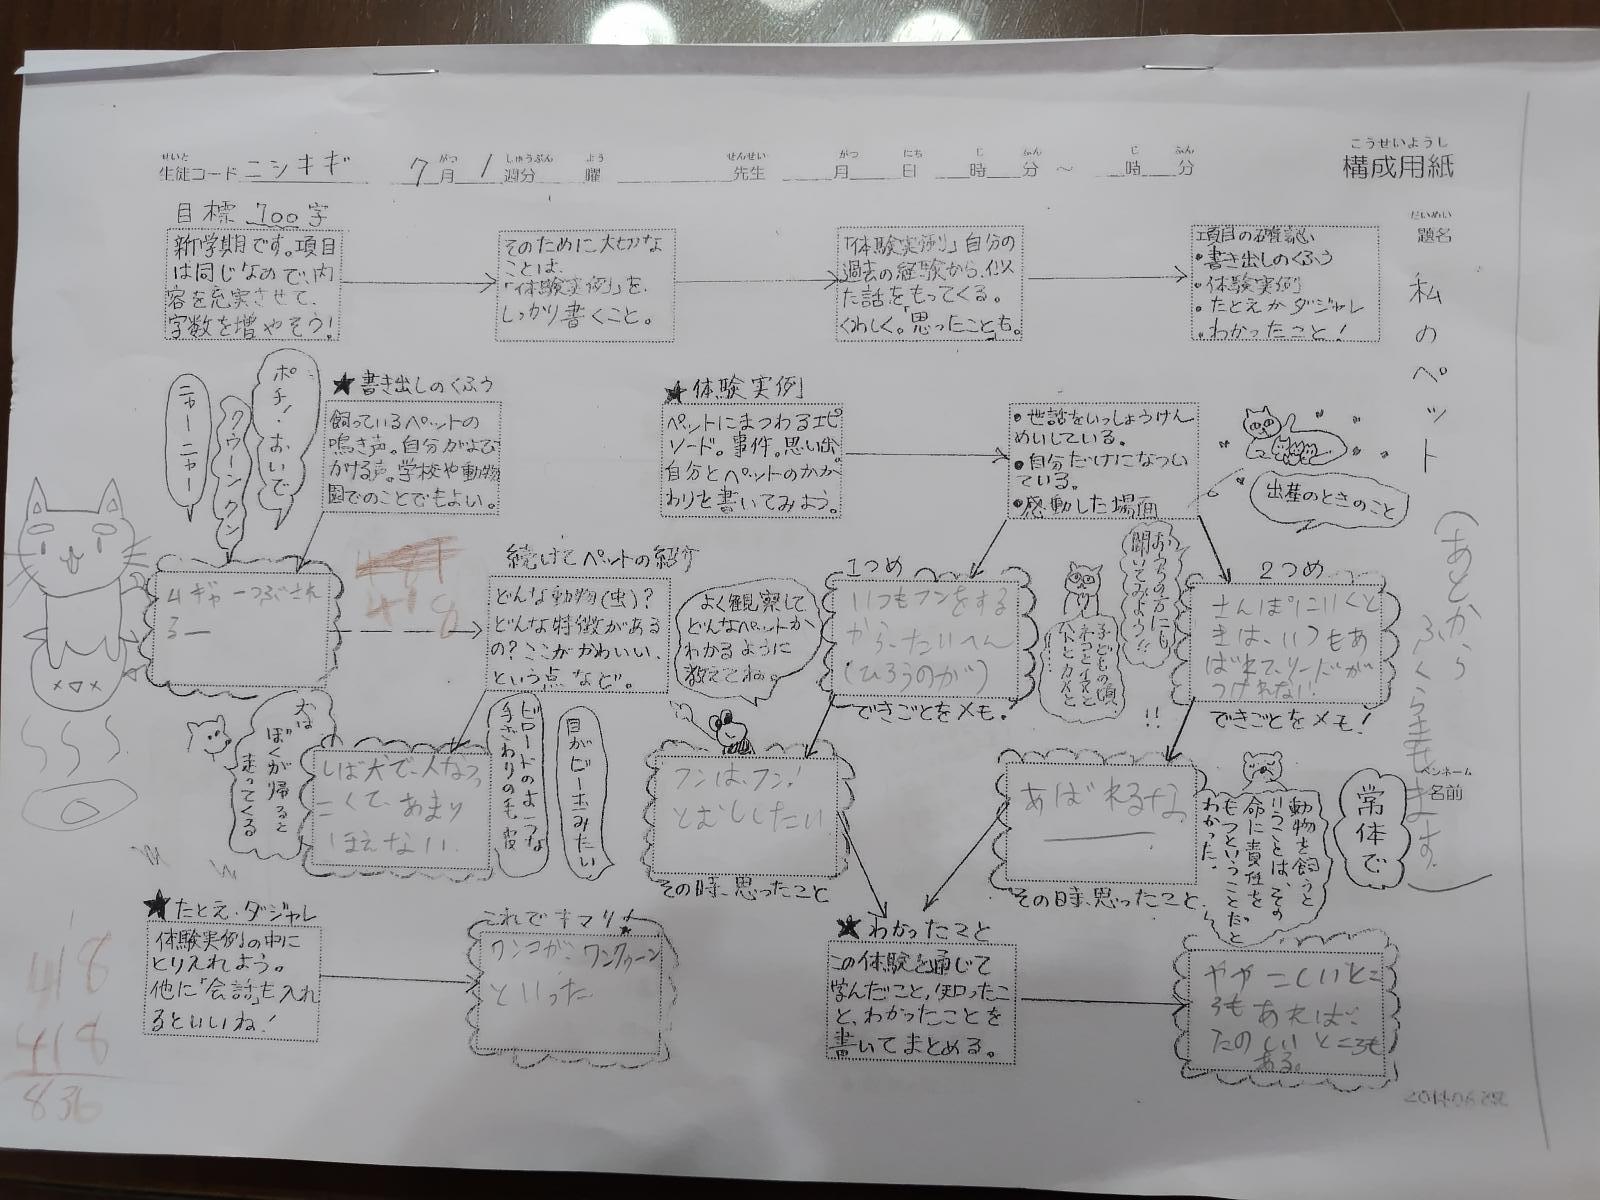 こうせいようし
構成用紙
せいと しゅうぶん がつ よう せんせい がつ にち じ ふん じ ふん
生徒コード ニシキギ 7月 1週分 曜 先生 月 日 時 分 ～ 時 分
だいめい
題名
私のペット
(あとから
ふくらまします。)
ペンネーム
名前
目標 700字
新学期です。項目
は同じなので、内
容を充実させて、
字数を増やそう!
そのために大切な
ことは、
「体験実例」を、
しっかり書くこと。
「体験実例」自分の
過去の経験から、似
た話をもってくる。
くわしく。「思ったことも。
項目の確認
・書き出しのくふう
・体験実例
・たとえかダジャレ
・わかったこと!
ポチ!おいで
クウーンクン
ニャーニャー
★書き出しのくふう
飼っているペットの
鳴き声。自分がよび
かける声。学校や動物
園でのことでもよい。
★体験実例
ペットにまつわるエピ
ソード。事件。思い出。
自分とペットのかか
わりを書いてみよう。
・世話をいっしょうけん
めいしている。
・自分だけになつい
ている。
・感動した場面
出産のときのこと
おうちの方にも
聞いてみよう!!
子どもの頃、
ネコとイヌと
ハトとカメと
!!
ムギャーつぶされ
るー
418
続けてペットの紹介
どんな動物(虫)?
どんな特徴がある
の?ここがかわいい、
という点など。
よく観察して
どんなペットか
わかるように
教えてね。
1つめ
いつもフンをする
から、たいへん
(ひろうのが)
できごとをメモ!
2つめ
さんぽにいくと
きは、いつもあ
ばれて、リードが
つけれない!
できごとをメモ!
犬は
ぼくが帰ると
走ってくる
しば犬で、人なつっ
こくて、あまり
ほえない。
ビロードのような
手ざわりの毛皮
目がビー玉みたい
フンは、フン!
とむししたい
その時、思ったこと
あばれるな。
その時、思ったこと
動物を飼うと
いうことは、その
命に責任を
もつということだと
わかった。
常体で
★たとえ・ダジャレ
体験実例の中に
とり入れよう。
他に「会話」も入れ
るといいね!
これでキマリ!
ワンコが、ワンクゥーン
といった
★わかったこと
この体験を通じて
学んだこと、知ったこ
と、わかったことを
書いてまとめる。
ややこしいとこ
ろもあれば、
たのしいところも
ある。
418
418
836